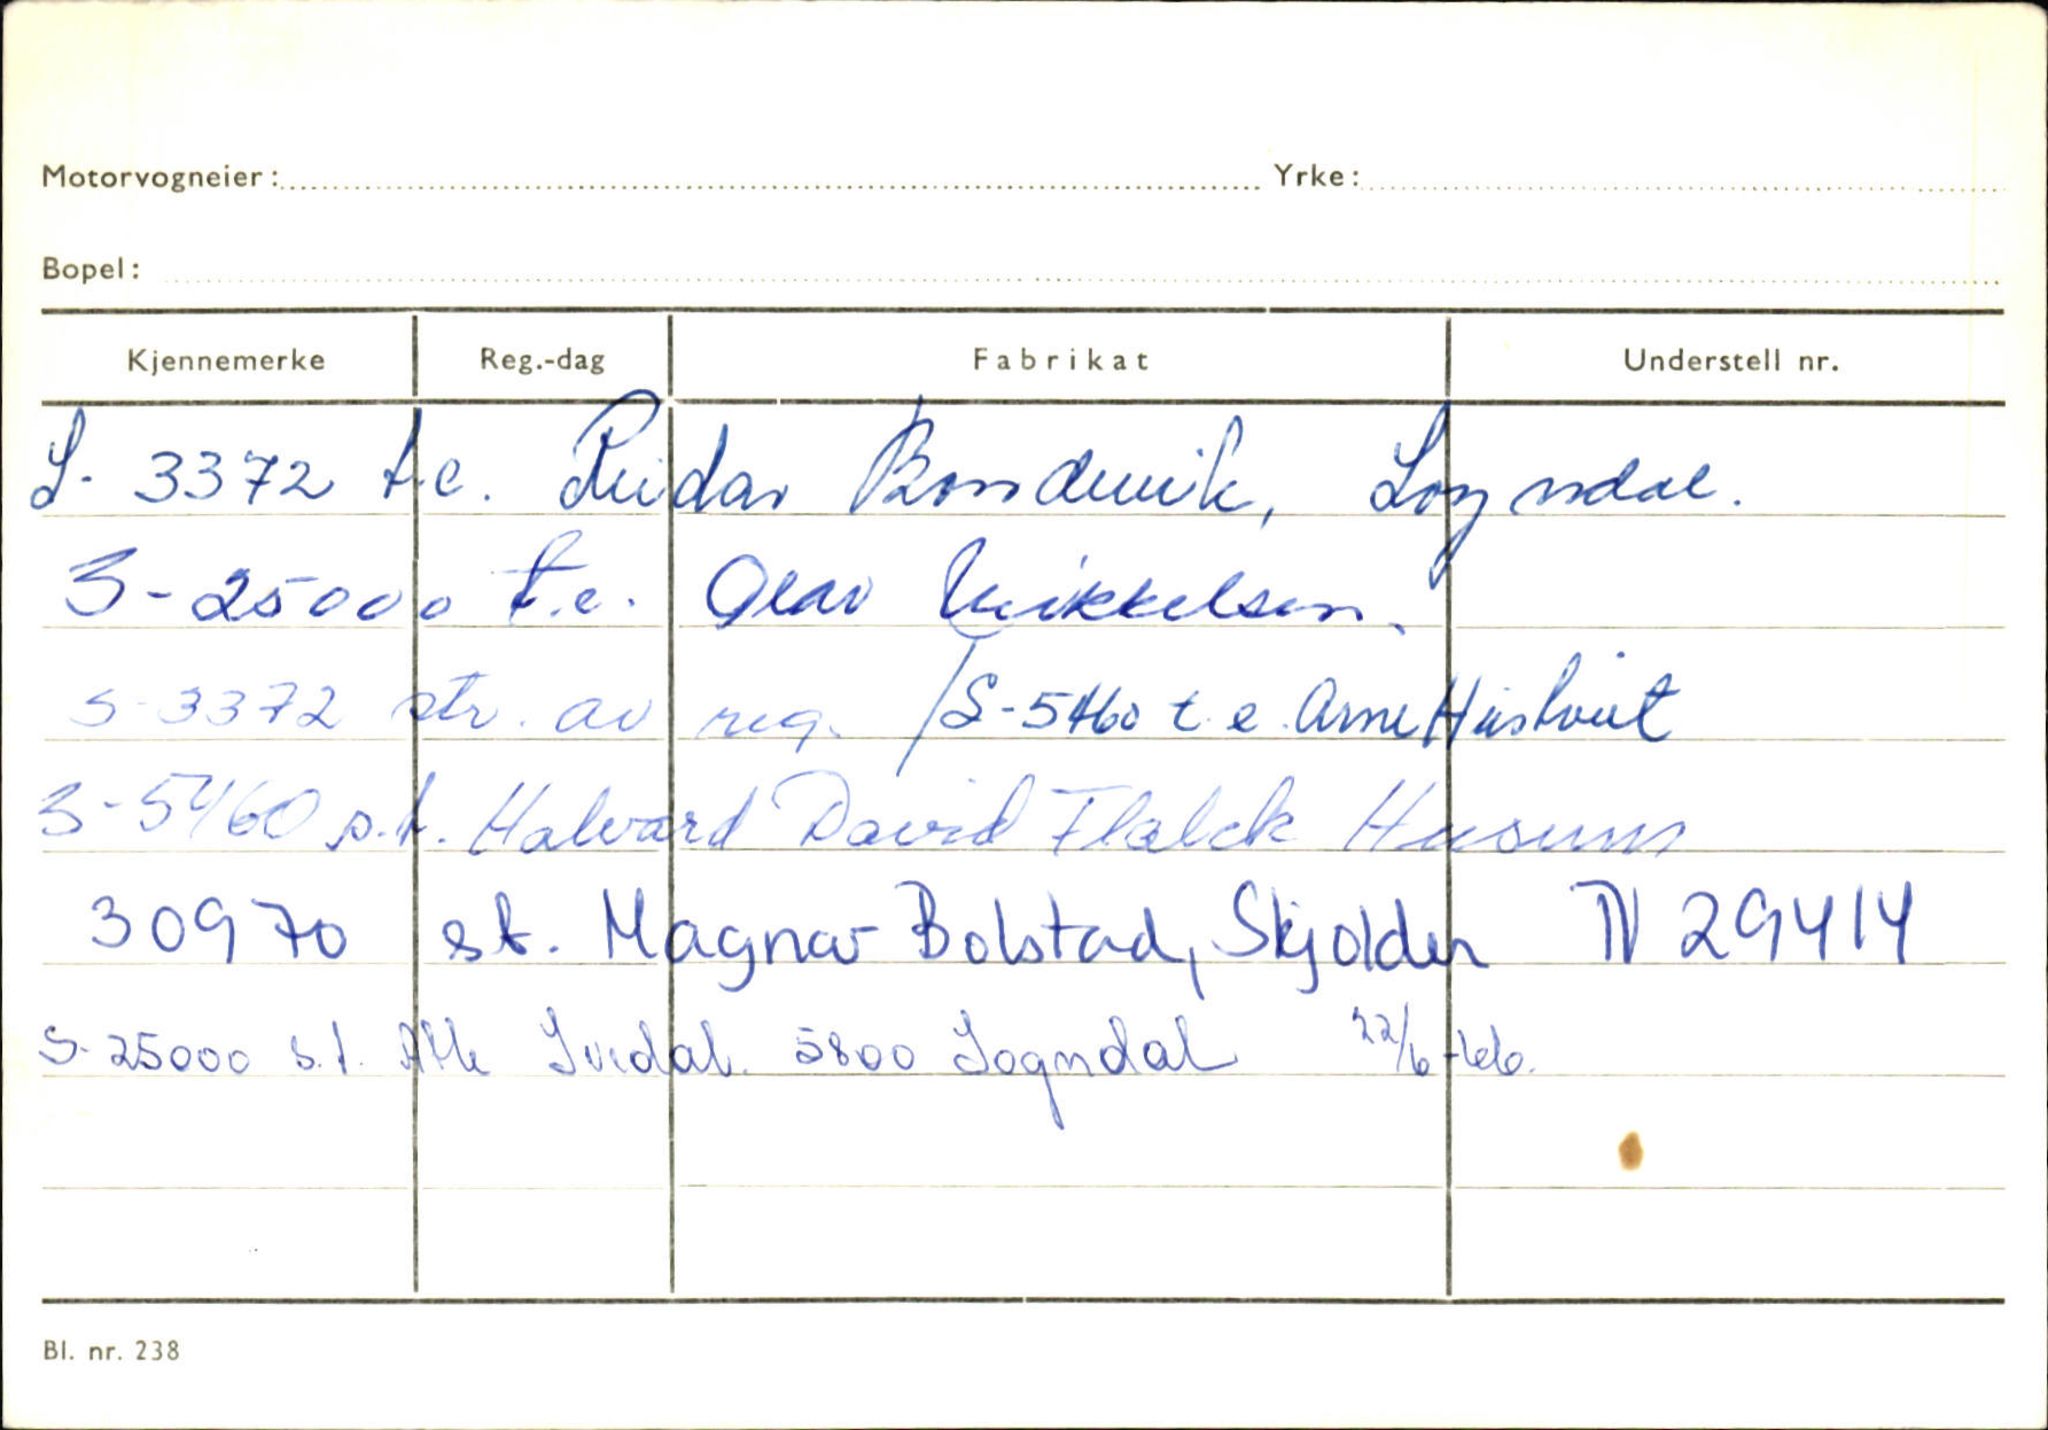 Motorvogneier: Yrke:
Bopel:
Kjennemerke Reg.-dag Fabrikat Understell nr.
S- 3372 t.e. Reidar Bondevik, Sogndal.
S-25000 t.e. Olav Mikkelsen.
S-3372 str. av reg. /S-5460 t.e. Arne
S-5460 s.t. Halvard David Flalck Husum
30970 st. Magnar Bolstad, Skjolden N 29414
S-25000 s.t. Atle 5800 Sogndal 22/6-66.
Bl. nr. 238